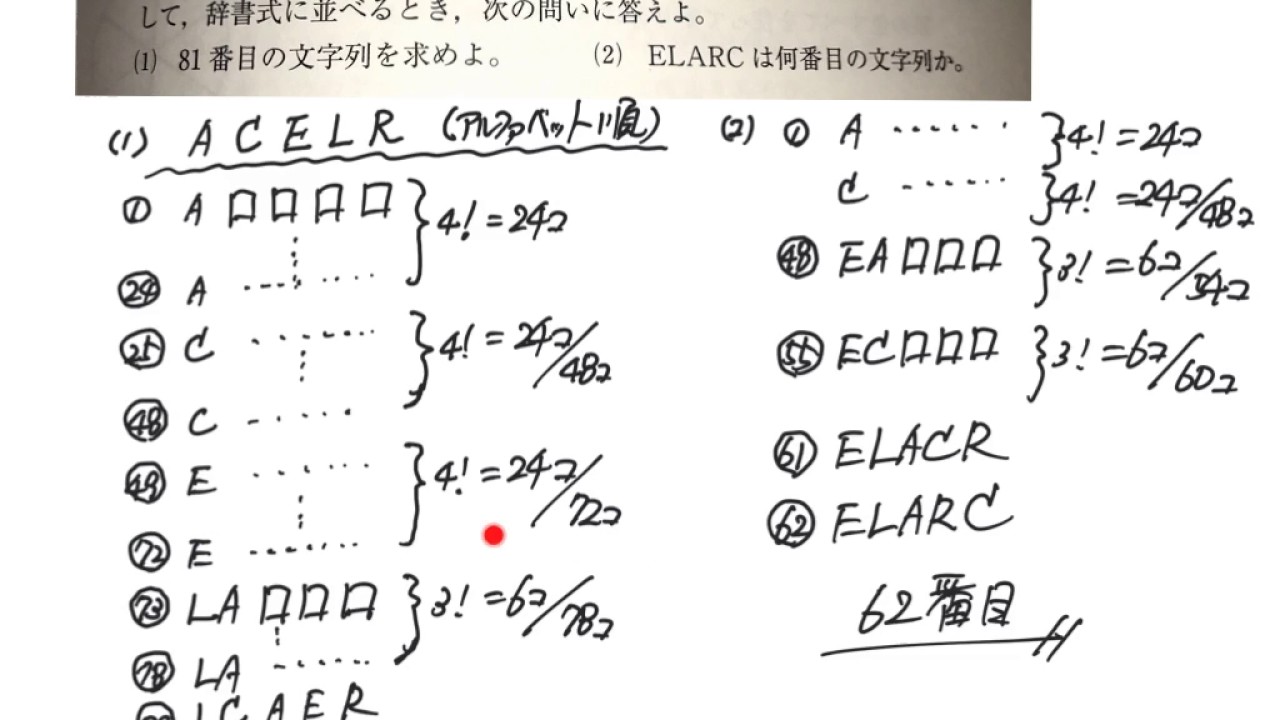 して，辞書式に並べるとき，次の問いに答えよ。
(1) 81番目の文字列を求めよ。 (2) ELARCは何番目の文字列か。
(1) A C E L R (アルファベット順)
① A□□□□ } 4! = 24コ
㉔ A ‥‥
㉕ C ‥‥ } 4! = 24コ/48コ
㊽ C ‥‥
㊾ E ‥‥ } 4! = 24コ/72コ
72 E ‥‥
73 LA□□□ } 3! = 6コ/78コ
78 LA ‥‥
LCAER
(2) ① A ‥‥ } 4! = 24コ
C ‥‥ } 4! = 24コ/48コ
㊽ EA□□□ } 3! = 6コ/54コ
55 EC□□□ } 3! = 6コ/60コ
61 ELACR
62 ELARC
62番目